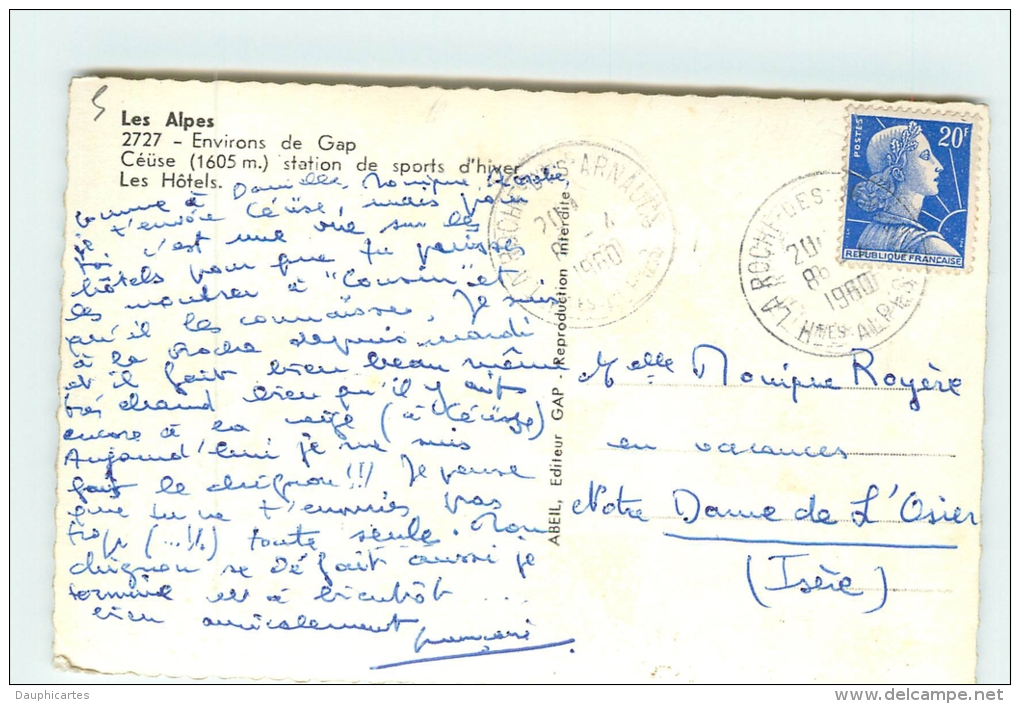 Les Alpes
2727 - Environs de Gap
Céüse (1605 m.) station de sports d'hiver
Les Hôtels.
comme à Danielle, Monique,
je t'envoie Céüse, mais pour
toi c'est une vue sur les
hôtels pour que tu puisses
les montrer à "Cousin" et
qu'il les connaisse. Je suis
à la Roche depuis mardi
et il fait bien beau même
très chaud bien qu'il y ait
encore à la neige (à Céüse)
Aujourd'hui je me suis
fait le chignon!!! Je pense
que tu ne t'ennuies pas
trop (...!!.) toute seule. Mon
chignon se défait aussi je
termine et à bientôt ...
bien amicalement
ABEIL, Editeur GAP - Reproduction interdite
LA ROCHE-DES-ARNAUDS
20
8 4
1960
POSTES
20F
REPUBLIQUE FRANÇAISE
LA ROCHE-DES
20
8
1960
Htes ALPES
Melle Monique Royère
en vacances
Notre Dame de L'Osier
(Isère)
Dauphicartes
www.delcampe.net